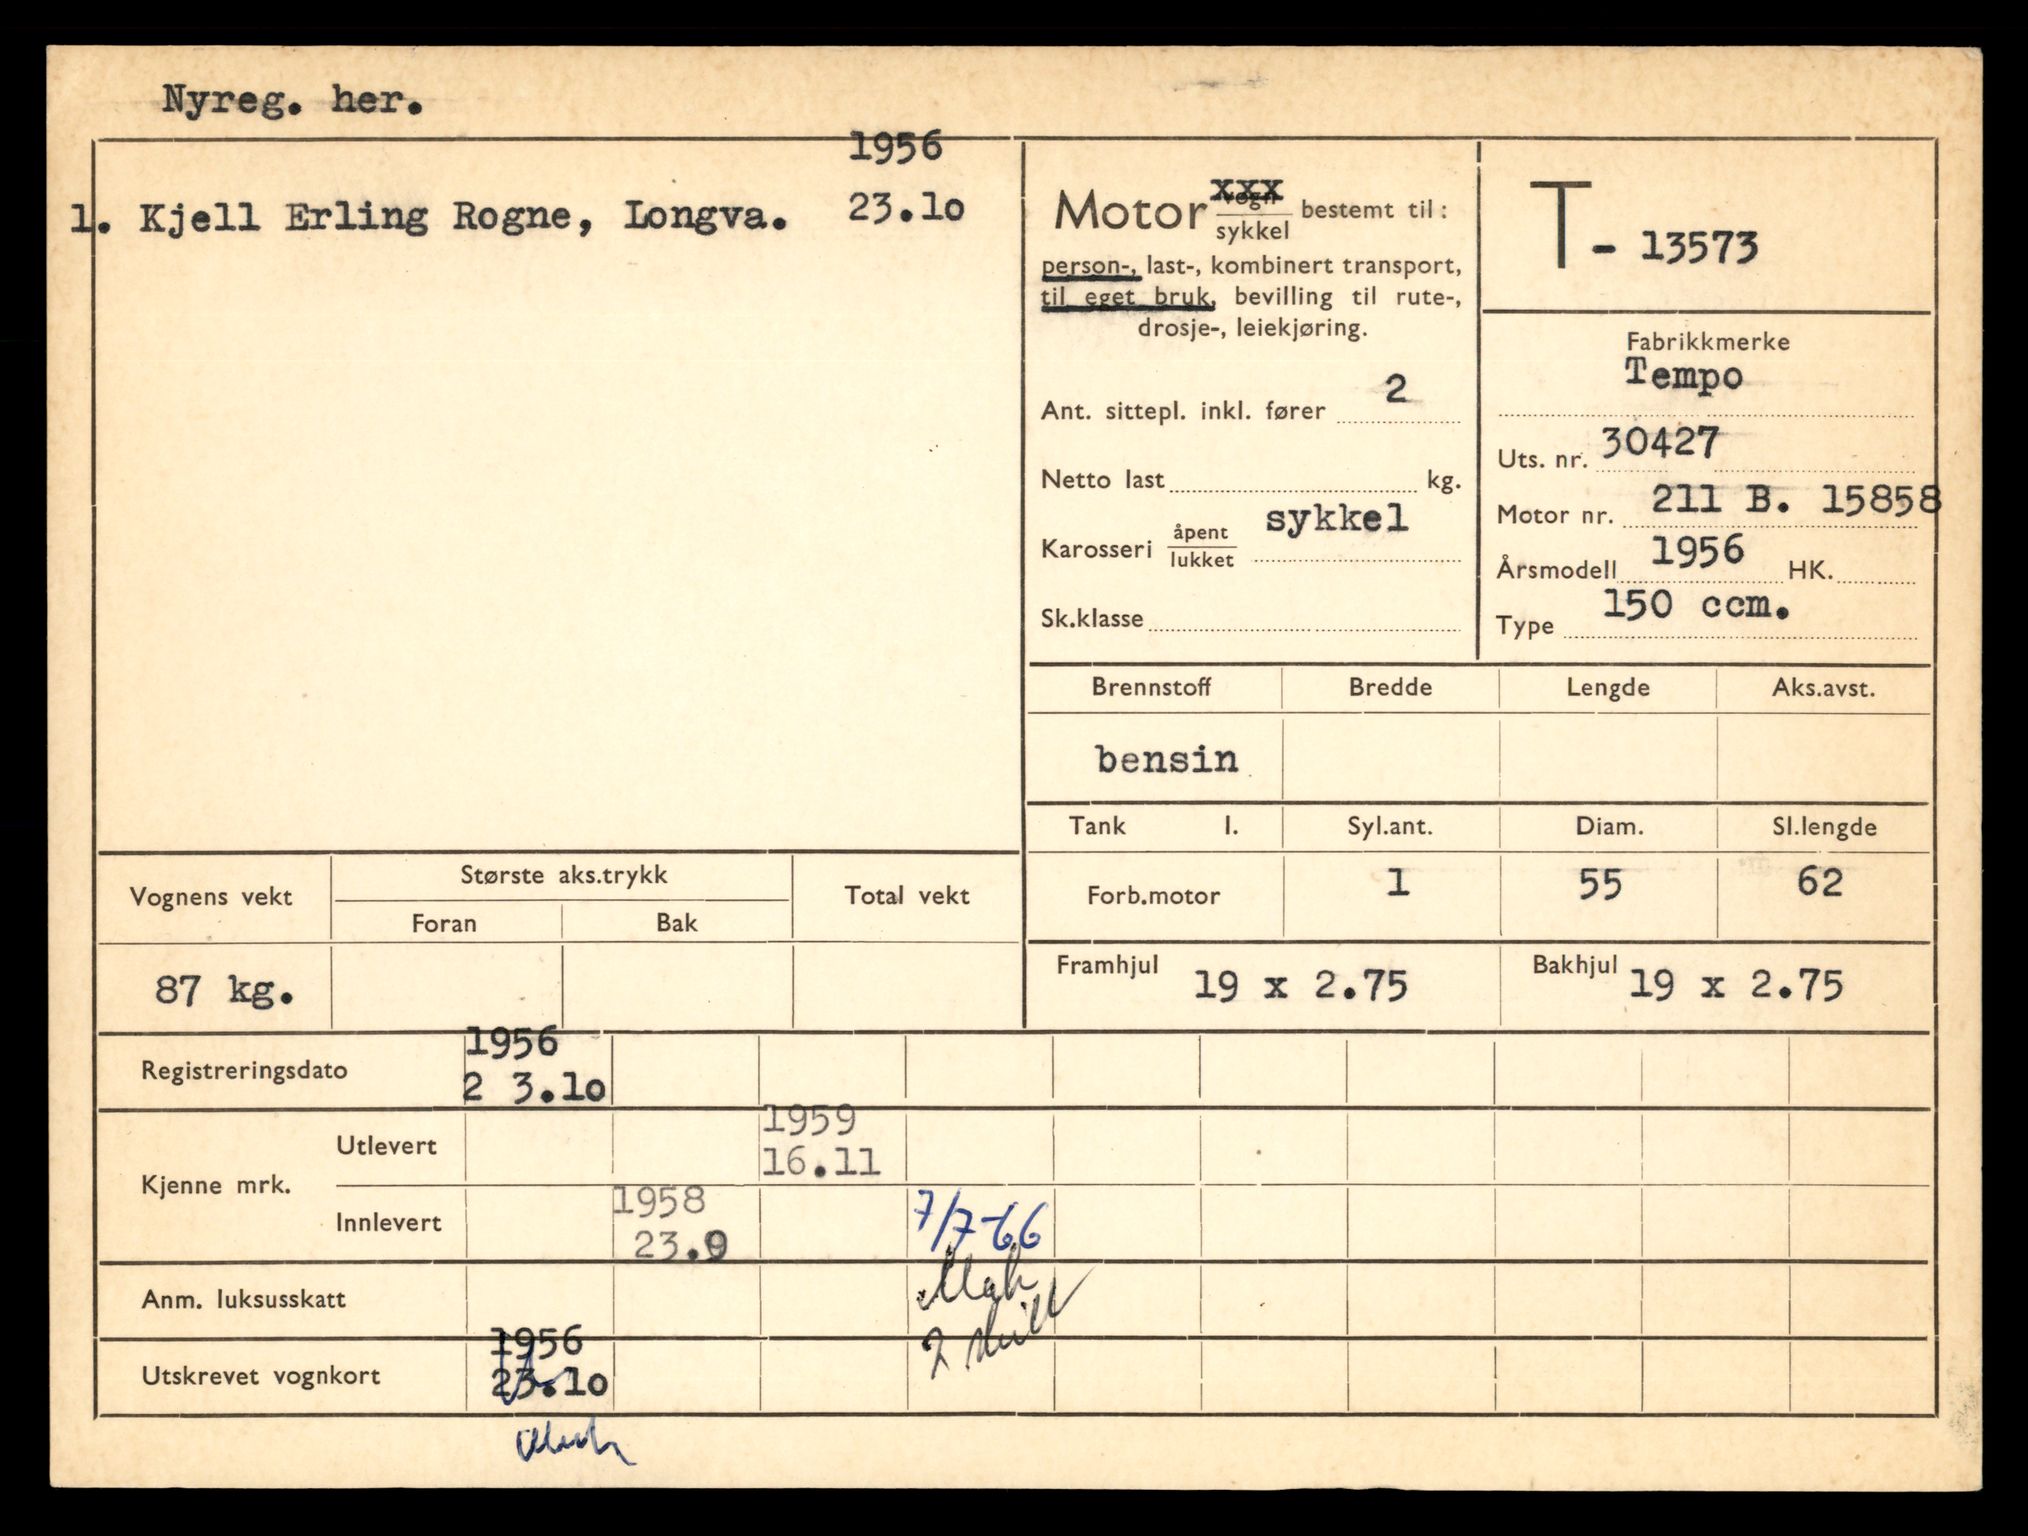 Nyreg. her.
1956
1. Kjell Erling Rogne, Longva. 23.1o
Motor xxx
vogn
sykkel bestemt til:
person-, last-, kombinert transport,
til eget bruk, bevilling til rute-,
drosje-, leiekjøring.
Ant. sittepl. inkl. fører 2
Netto last kg.
Karosseri åpent
lukket sykkel
Sk.klasse
T - 13573
Fabrikkmerke
Tempo
Uts. nr. 30427
Motor nr. 211 B. 15858
Årsmodell 1956 HK.
Type 150 ccm.
Brennstoff Bredde Lengde Aks.avst.
bensin
Tank l. Syl.ant. Diam. Sl.lengde
Forb.motor 1 55 62
Framhjul 19 x 2.75 Bakhjul 19 x 2.75
Vognens vekt Største aks.trykk Total vekt
Foran Bak
87 kg.
1956
Registreringsdato 2 3.1o
1959
Utlevert 16.11
Kjenne mrk.
1958
Innlevert 23.9 7/7-66
Anm. luksusskatt
1956
Utskrevet vognkort 23.1o